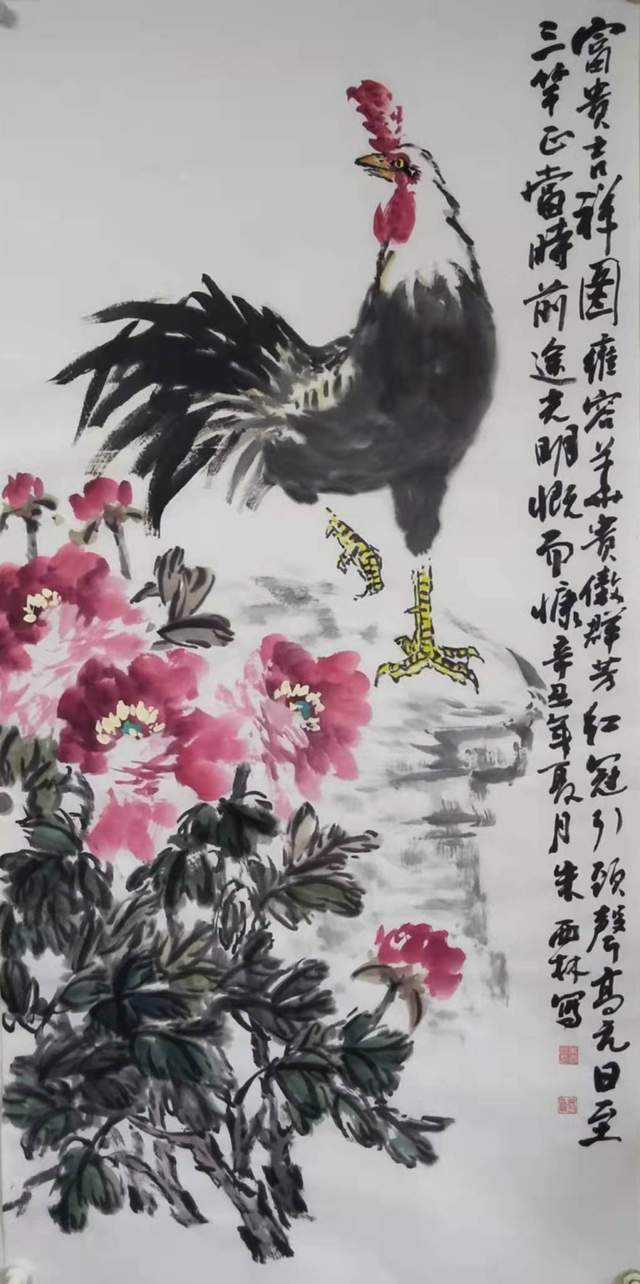 富贵吉祥图雍容华贵傲群芳红冠引颈声高亢日至
三竿正當時前途光明慨而慷辛丑年夏月朱西林写